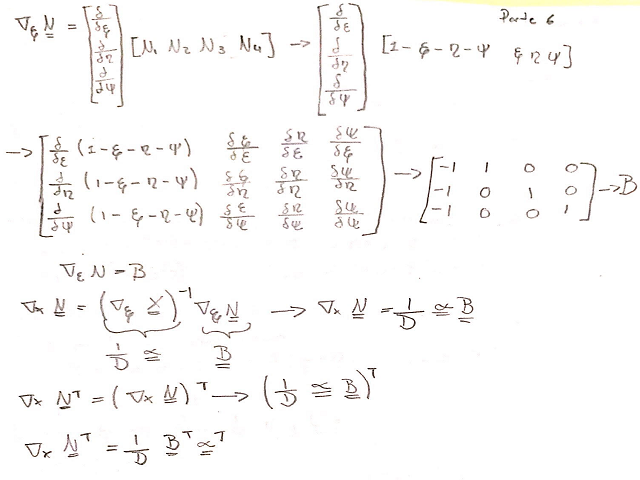 Parte 6
∇ξ N = [δ/δξ δ/δη δ/δψ] [N1 N2 N3 N4] → [δ/δξ δ/δη δ/δψ] [1-ξ-η-ψ ξ η ψ]
→ [δ/δξ (1-ξ-η-ψ) δξ/δξ δη/δξ δψ/δξ
δ/δη (1-ξ-η-ψ) δξ/δη δη/δη δψ/δη
δ/δψ (1-ξ-η-ψ) δξ/δψ δη/δψ δψ/δψ]
→ [-1 1 0 0
-1 0 1 0
-1 0 0 1] → B
∇ξ N = B
∇x N = (∇ξ X)⁻¹ ∇ξ N → ∇x N = 1/D α B
1/D α B
∇x Nᵀ = (∇x N)ᵀ → (1/D α B)ᵀ
∇x Nᵀ = 1/D Bᵀ αᵀ